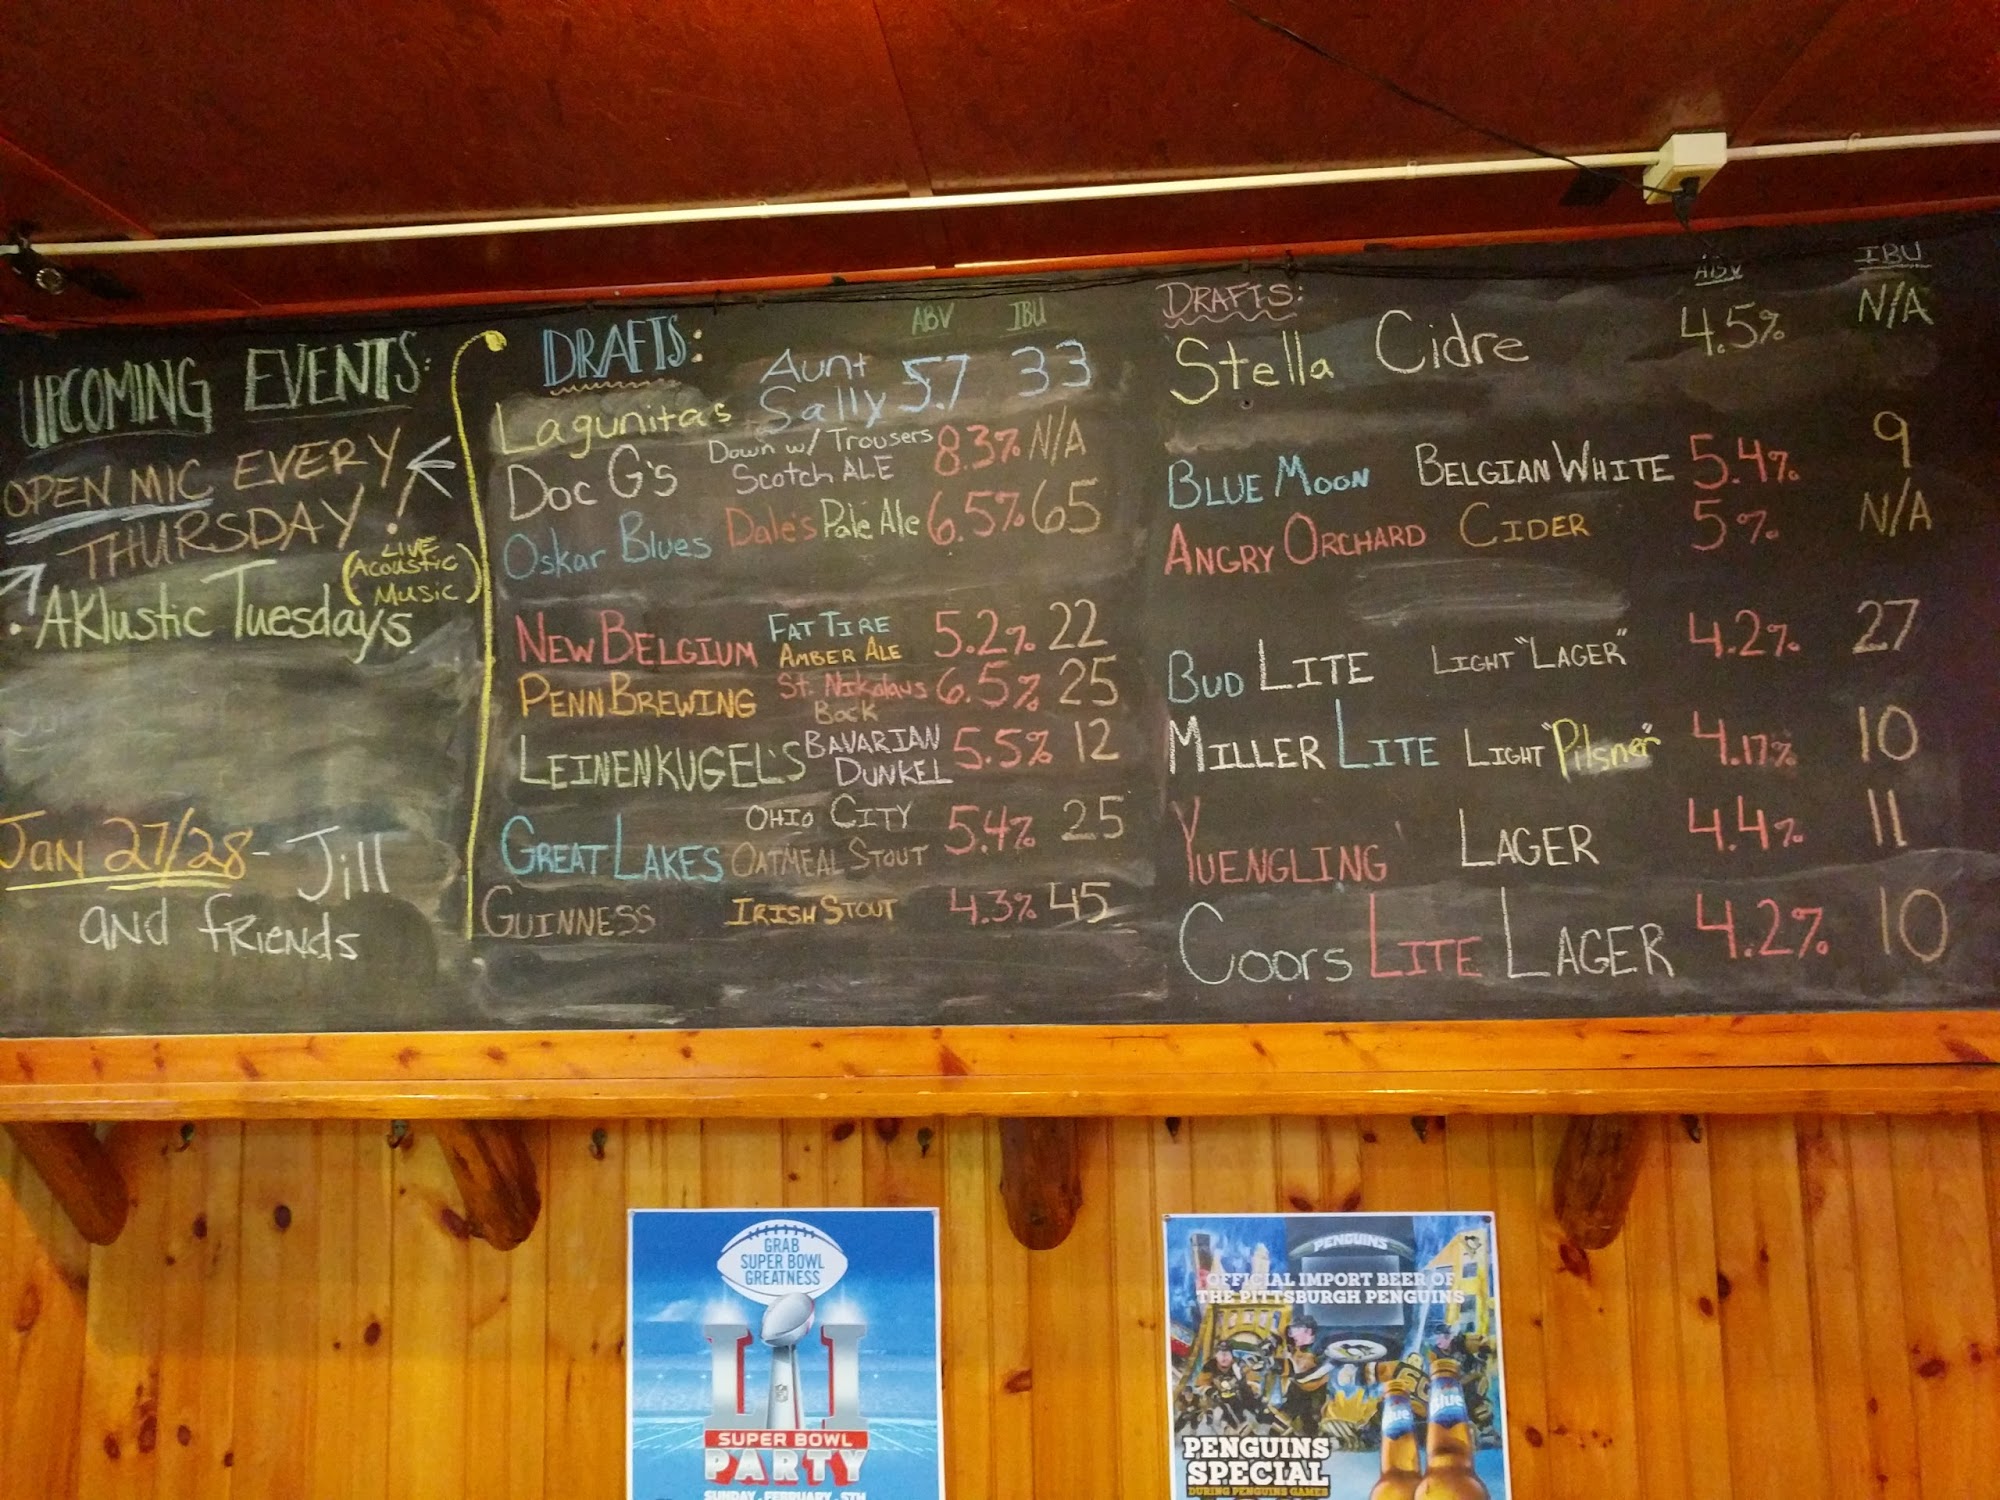 UPCOMING EVENTS:
OPEN MIC EVERY
THURSDAY!
(LIVE
Acoustic
Music)
• AKlustic Tuesdays
Jan 27/28 - Jill
and friends
DRAFTS: ABV IBU
Lagunitas Aunt Sally 5.7 33
Doc G's Down w/ Trousers Scotch ALE 8.3% N/A
Oskar Blues Dale's Pale Ale 6.5% 65
NEW BELGIUM FAT TIRE AMBER ALE 5.2% 22
PENN BREWING St. Nikolaus Bock 6.5% 25
LEINENKUGEL'S BAVARIAN DUNKEL 5.5% 12
GREAT LAKES OHIO CITY OATMEAL STOUT 5.4% 25
GUINNESS IRISH STOUT 4.3% 45
DRAFTS: ABV IBU
Stella Cidre 4.5% N/A
BLUE MOON BELGIAN WHITE 5.4% 9
ANGRY ORCHARD CIDER 5% N/A
BUD LITE LIGHT "LAGER" 4.2% 27
MILLER LITE LIGHT "Pilsner" 4.17% 10
YUENGLING LAGER 4.4% 11
Coors LITE LAGER 4.2% 10
GRAB
SUPER BOWL
GREATNESS
LI
SUPER BOWL
PARTY
SUNDAY, FEBRUARY 5TH
PENGUINS
OFFICIAL IMPORT BEER OF
THE PITTSBURGH PENGUINS
Blue
PENGUINS
SPECIAL
DURING PENGUINS GAMES